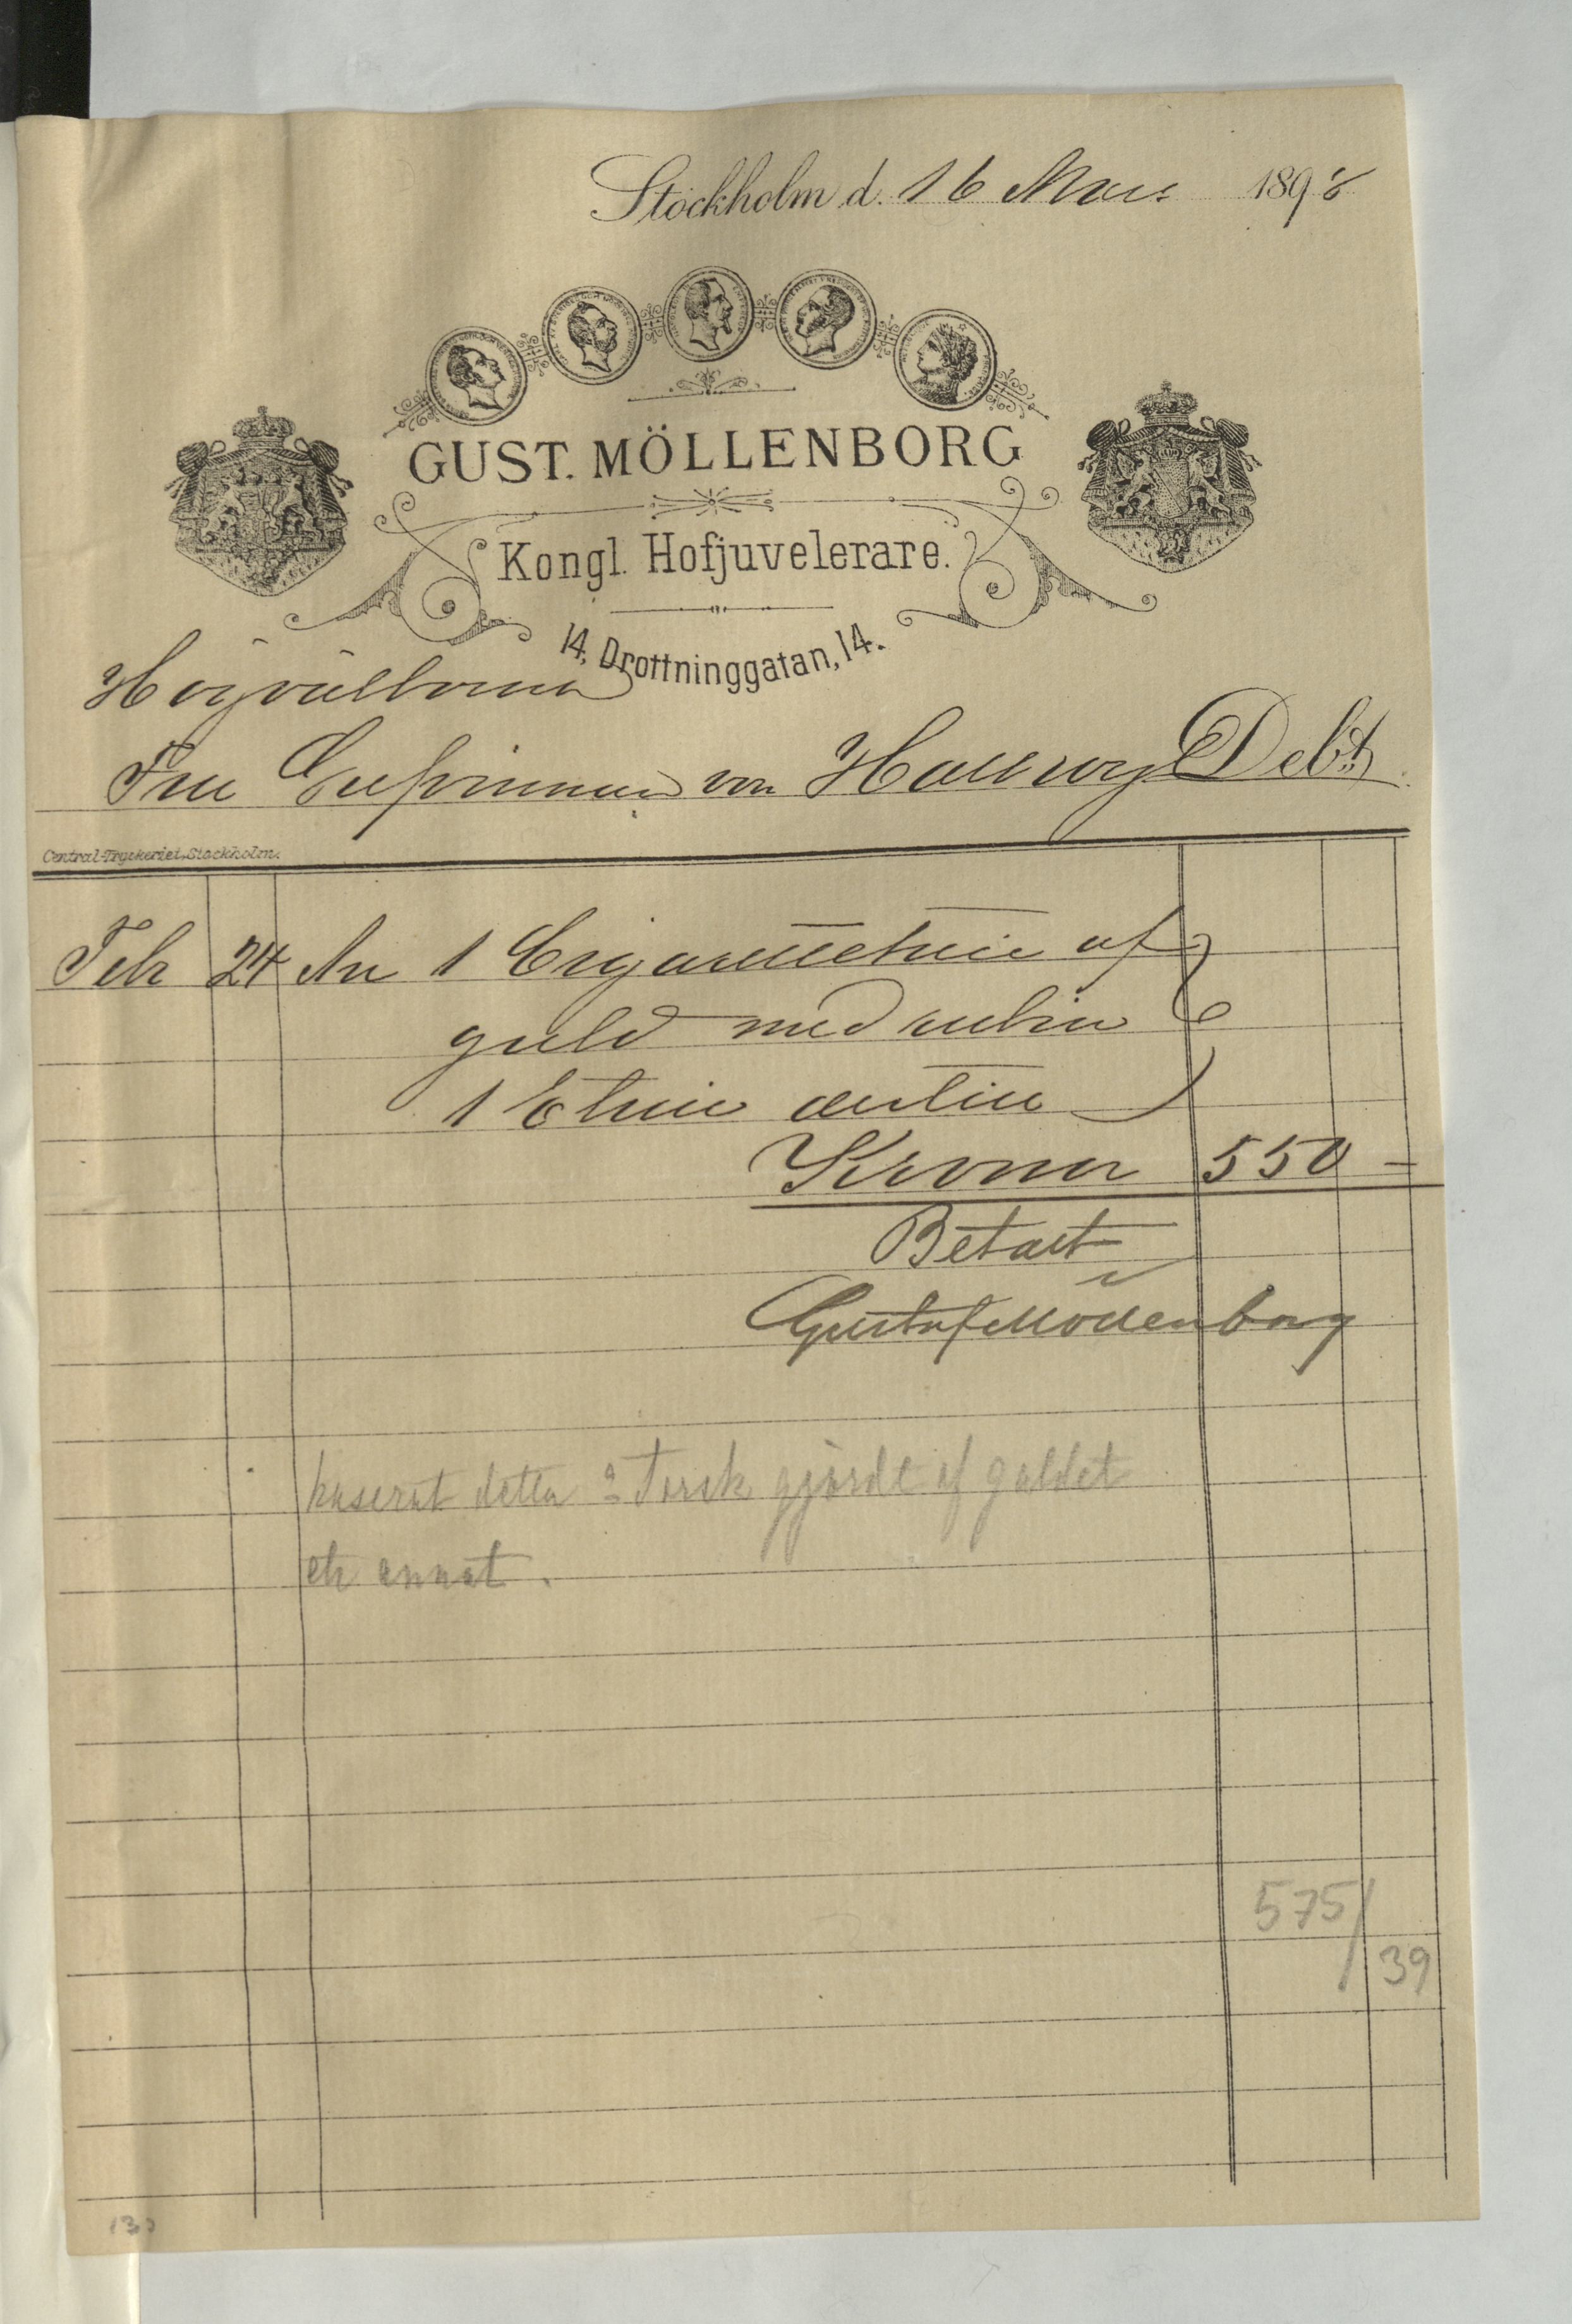 Stockholm d. 16 Mars 1898
GUST. MÖLLENBORG
Kongl. Hofjuvelerare.
14, Drottninggatan, 14.
Högvälborna
Fru Grefvinnan von Hallwyl Debt.
Central-Tryckeriet, Stockholm.
Feb 24 An 1 Cigarettetuie af
guld med rubin
1 Etuie dertill
Kronor 550 –
Betalt
Gustaf Möllenborg
kaserat detta o Torsk gjorde af guldet
ett annat.
575/
39